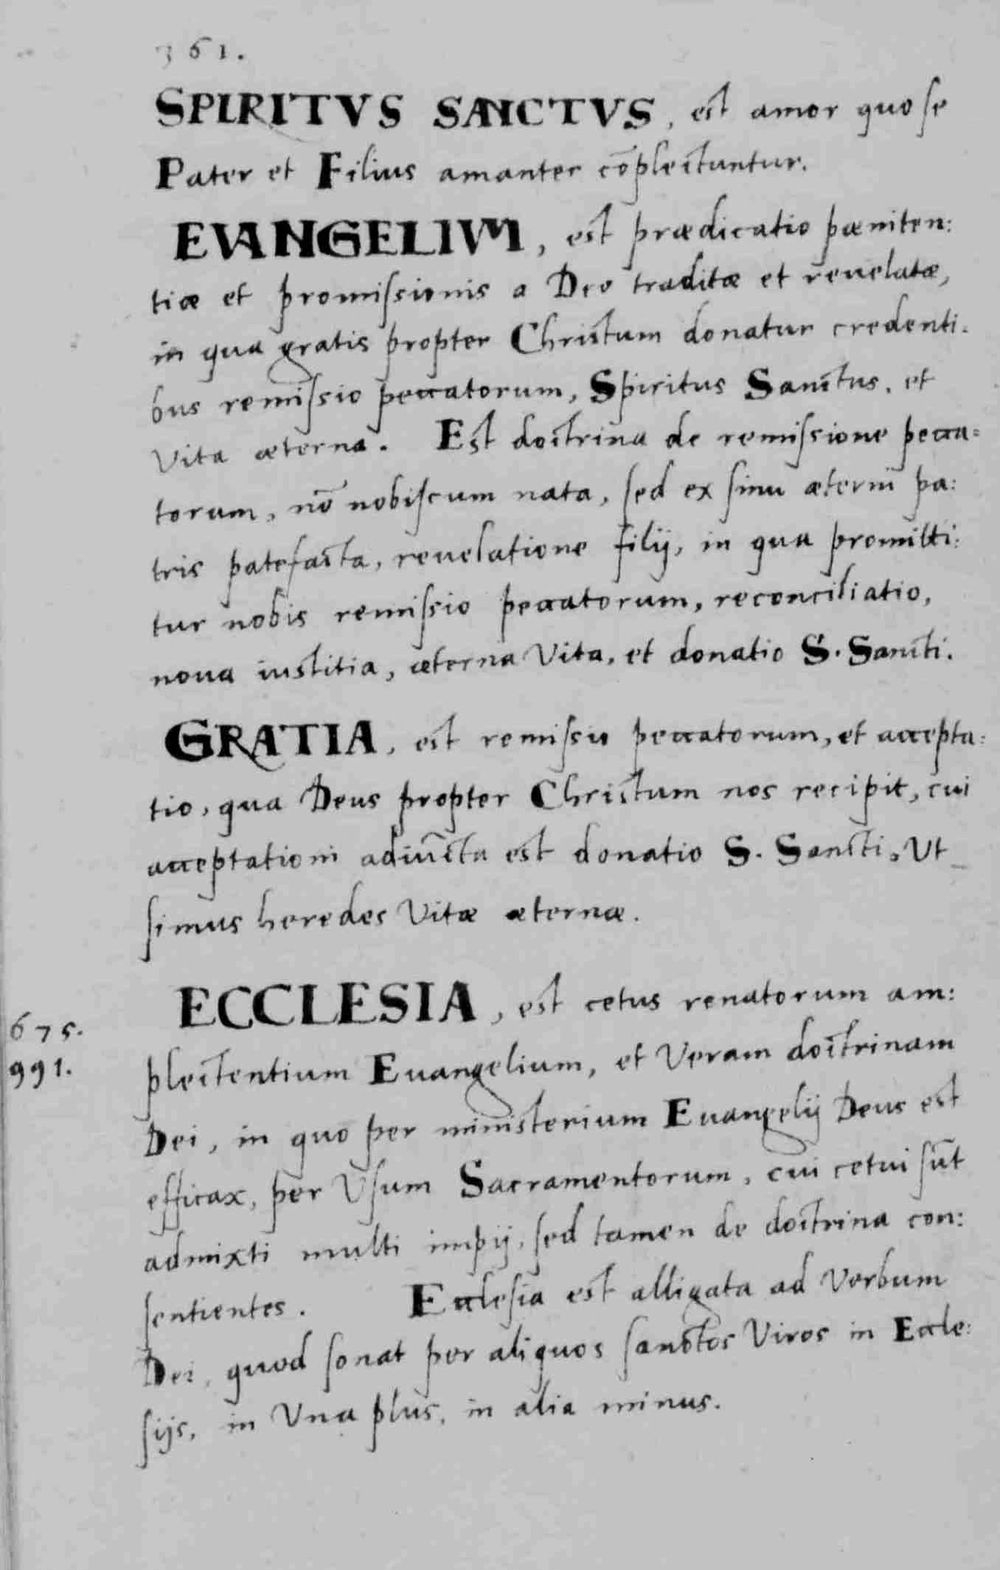 361.
SPIRITVS SANCTVS, est amor quo se
Pater et Filius amanter cōplectuntur.
EVANGELIVM, est prædicatio pæniten:
tiæ et promissionis a Deo traditæ et reuelatæ,
in qua gratis propter Christum donatur credenti:
bus remissio peccatorum, Spiritus Sanctus, et
Vita æterna. Est doctrina de remissione pecca=
torum, nō nobiscum nata, sed ex sinu æterni pa:
tris patefacta, reuelatione filij, in qua promitti:
tur nobis remissio peccatorum, reconciliatio,
noua iustitia, æterna Vita, et donatio S. Sancti.
GRATIA, est remissio peccatorum, et accepta:
tio, qua Deus propter Christum nos recipit, cui
acceptationi adiūcta est donatio S. Sancti, Ut
simus heredes Vitæ æternæ.
ECCLESIA, est cetus renatorum am:
675.
991.
plectentium Euangelium, et Veram doctrinam
Dei, in quo per ministerium Euangelij Deus est
efficax, per Vsum Sacramentorum, cui cetui sūt
admixti multi impij, sed tamen de doctrina con:
sentientes. Ecclesia est alligata ad Verbum
Dei, quod sonat per aliquos sanctos Viros in Eccle:
sijs, in Vna plus, in alia minus.